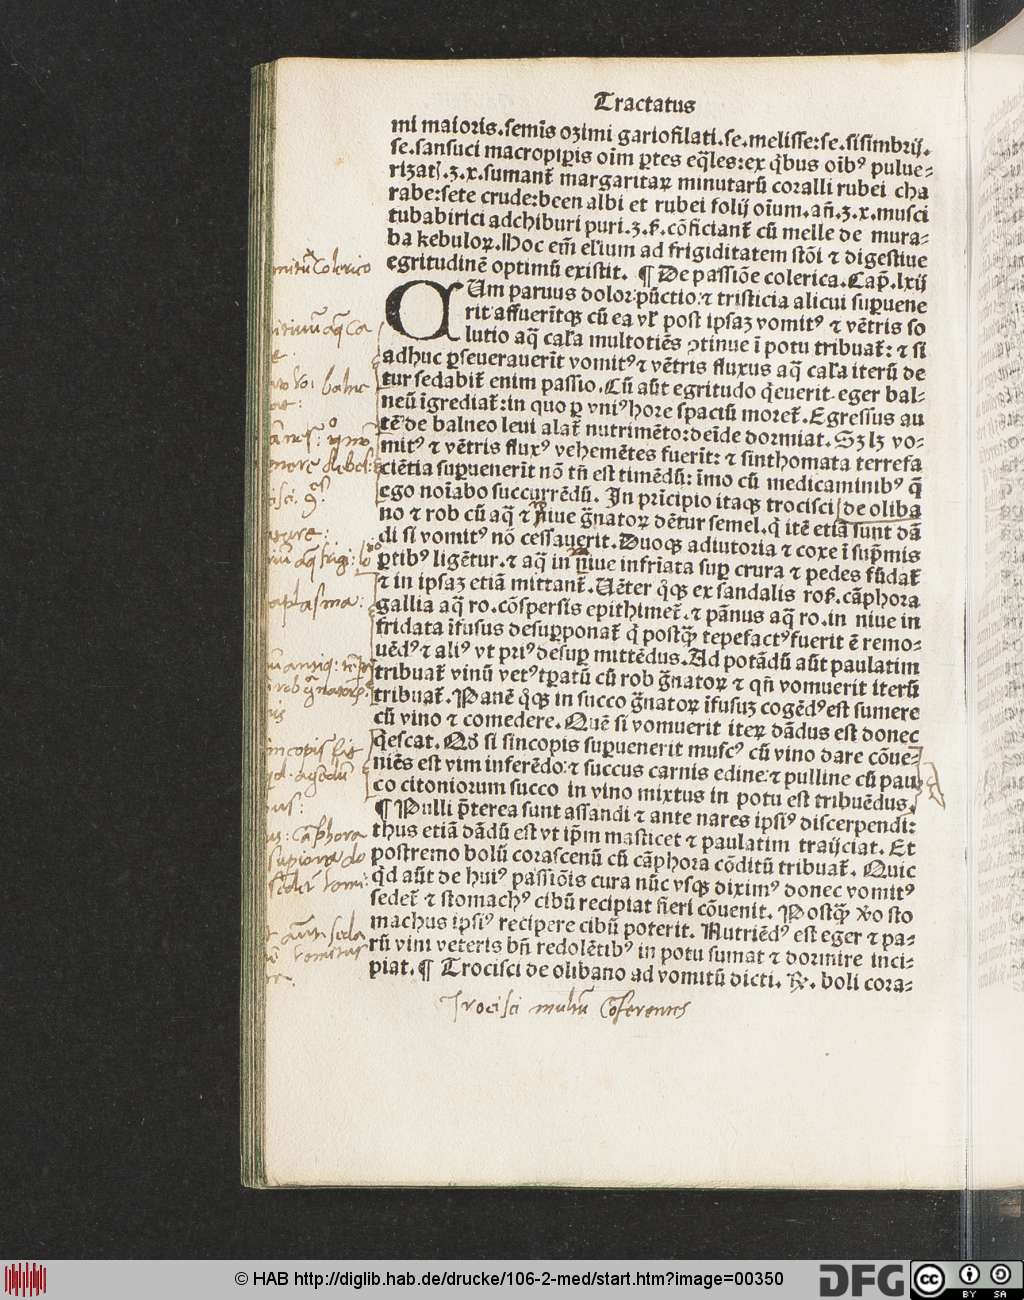 Tractatus
mi maioris.semīs ozimi gariofilati.se.melisse:se.sisimbrij.
se.sansuci macropiꝑis oīm ꝑtes eq̄les:ex q̇bus oīb⁹ pulue⸗
rizatꝭ.ʒ.x.sumant̄ margaritaꝝ minutarū coralli rubei cha
rabe:sete crude:been albi et rubei folij oīum.an̄.ʒ.x.musci
tubabirici adchiburi puri.ʒ.ẞ.cōficiant̄ cū melle de mura⸗
ba kebuloꝝ.Hoc em̄ elīum ad frigiditatem stōi ⁊ digestiue
egritudinē optimū existit. ¶ De passiōe colerica.Cap̄.lxij
CUm paruus dolor:pūctio:⁊ tristicia alicui suꝑuene
rit:affuerītqꝫ cū ea vꝉ post ipsaꝫ vomit⁹ ⁊ vētris so
lutio aq̄ calꝉa multotiēs ꝯtinue ī potu tribuat̄: ⁊ si
adhuc ꝑseuerauerīt vomit⁹ ⁊ vētris fluxus aq̄ calꝉa iterū de
tur sedabit̄ enim passio.Cū aūt egritudo q̇euerit.eger bal⸗
neū īgrediat̄:in quo ꝑ vni⁹hore spaciū moret̄.Egressus au
tē de balneo leui alat̄ nutrimēto:deīde dormiat. Sꝫ lꝫ vo⸗
mit⁹ ⁊ vētris flux⁹ vehemētes fuerīt: ⁊ sinthomata terrefa
ciētia suꝑuenerīt nō tn̄ est timēdū: īmo cū medicaminib⁹ q̄
ego noīabo succurrēdū. In prīcipio itaqꝫ trocisci de oliba
no ⁊ rob cū aq̄ ⁊ niue g̈natoꝝ dētur semel.q̇ itē etiā sunt dā
di si vomit⁹ nō cessauerit.Duoqꝫ adiutoria ⁊ coxe ī sup̄mis
ꝑtib⁹ ligētur.⁊ aq̄ in niue infrīata suꝑ crura ⁊ pedes fūdat̄
⁊ in ipsaꝫ etiā mittant̄.Uēter q̊qꝫ ex sandalis roẞ.cāphora
gallia aq̄ ro.cōspersis epithimet̄.⁊ pānus aq̄ ro.in niue in
fridata īfusus desuꝑponat̄ q̇ postq̄ꝫ tepefact⁹fuerit ē remo⸗
uēd⁹ ⁊ ali⁹ vt pri⁹ desuꝑ mittēdus.Ad potādū aūt paulatim
tribuat̄ vinū vet⁹tꝑatū cū rob g̈natoꝝ ⁊ qn̄ vomuerit iterū
tribuat̄.Panē q̊qꝫ in succo g̈natoꝝ īfusuꝫ cogēd⁹est sumere
cū vino ⁊ comedere.Quē si vomuerit iteꝝ dādus est donec
q̇escat. Qd̄ si sincopis suꝑuenerit musc⁹ cū vino dare cōue⸗
niēs est vim inferēdo:⁊ succus carnis edine:⁊ pulline cū pau
co citoniorum succo in vino mixtus in potu est tribuēdus.
¶ Pulli p̄terea sunt assandi ⁊ ante nares ipsi⁹ discerpendi:
thus etiā dādū est vt ip̄m masticet ⁊ paulatim traijciat. Et
postremo bolū corascenū cū cāphora cōditū tribuat̄. Quic
q̇d aūt de hui⁹ passiōis cura nūc vsqꝫ dixim⁹ donec vomit⁹
sedet̄ ⁊ stomach⁹ cibū recipiat fieri cōuenit. Postq̄ꝫ v̊o sto
machus ipsi⁹ recipere cibū poterit. Nutriēd⁹ est eger ⁊ pa⸗
rū vini veteris bn̄ redolētib⁹ in potu sumat ⁊ dormire inci⸗
piat. ¶ Trocisci de olibano ad vomitū dicti. ℞. boli cora⸗
Trocisci multū cōferentes
© HAB http://diglib.hab.de/drucke/106-2-med/start.htm?image=00350
DFG
cc
BY SA